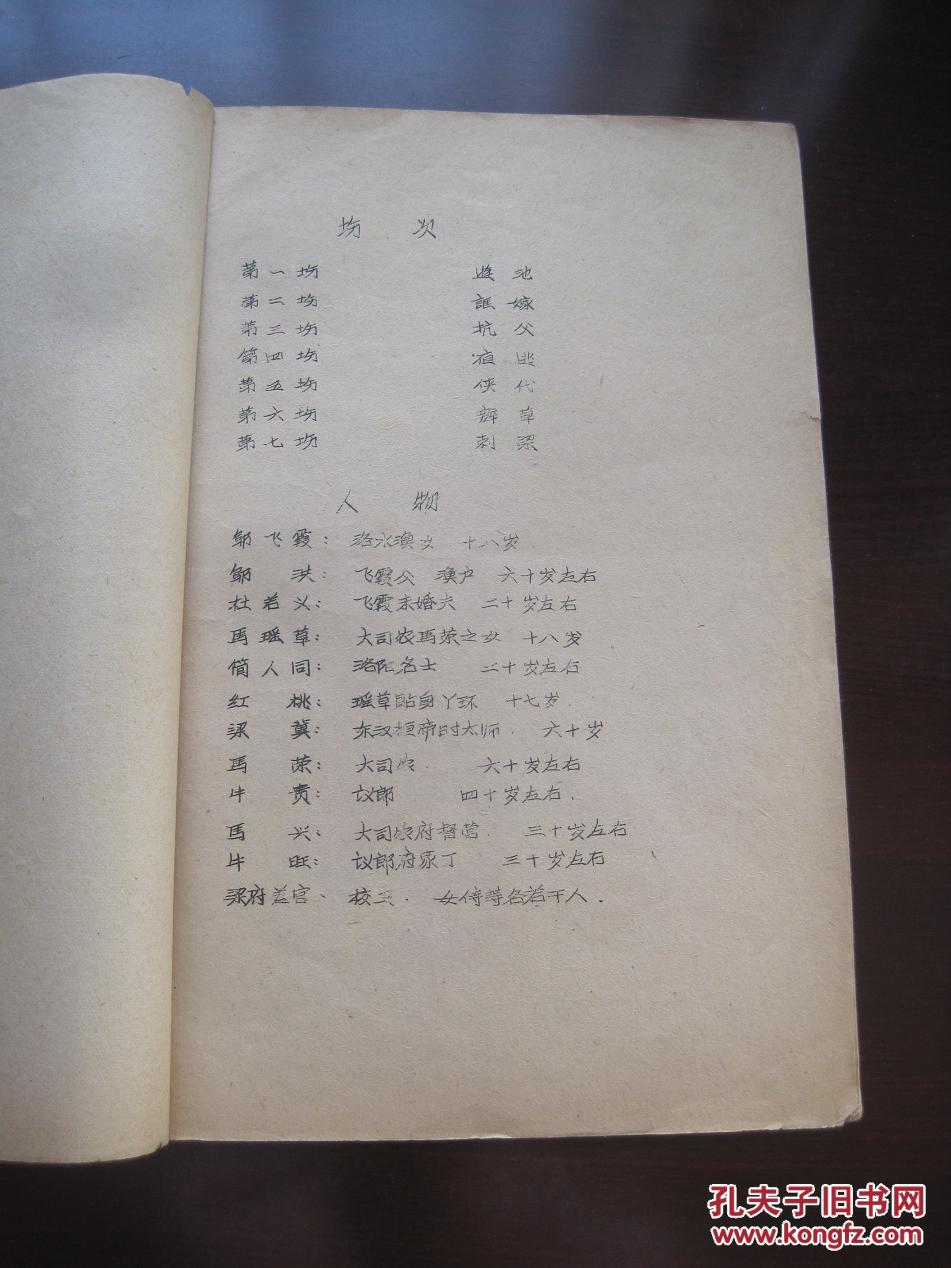 场 次
第一场 遊池
第二场 誆嫁
第三场 抗父
第四场
第五场 侠代
第六场 辨草
第七场 刺梁
人 物
邬飞霞： 洛水渔女 十八岁.
邬 洪： 飞霞父 渔户 六十岁左右
杜若义： 飞霞未婚夫 二十岁左右
馬瑶草： 大司农馬荣之女 十八岁
简人同： 洛阳名士 二十岁左右
红 桃： 瑶草贴身丫环 十七岁.
梁 冀： 东汉桓帝时太师. 六十岁
馬 荣： 大司农. 六十岁左右
牛 贵： 议郎 四十岁左右.
馬 兴： 大司农府督营. 三十岁左右
牛 旺： 议郎府家丁 三十岁左右
梁府差官、 校卫. 女侍等各若干人.
孔夫子旧书网
www.kongfz.com